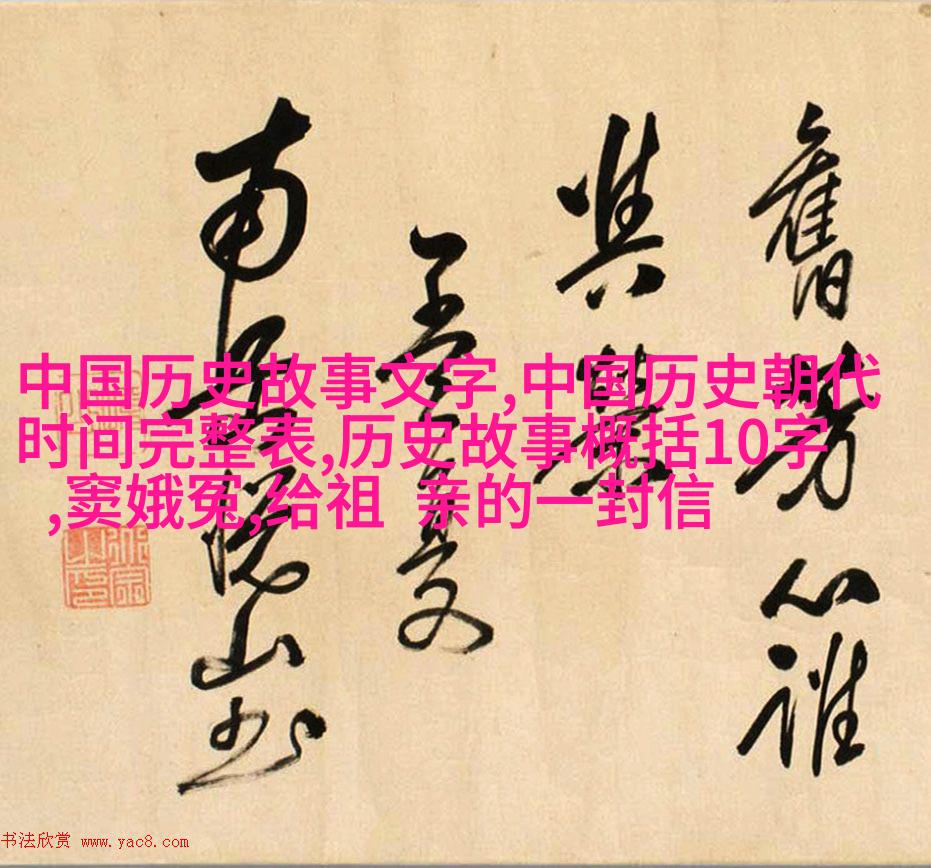 中国历史故事文字,中国历史朝代
时间完整表,历史故事概括10字
,窦娥冤,给祖 亲的一封信
舊 心誰
與
南岳悅山书
书法欣赏 www.yac8.com